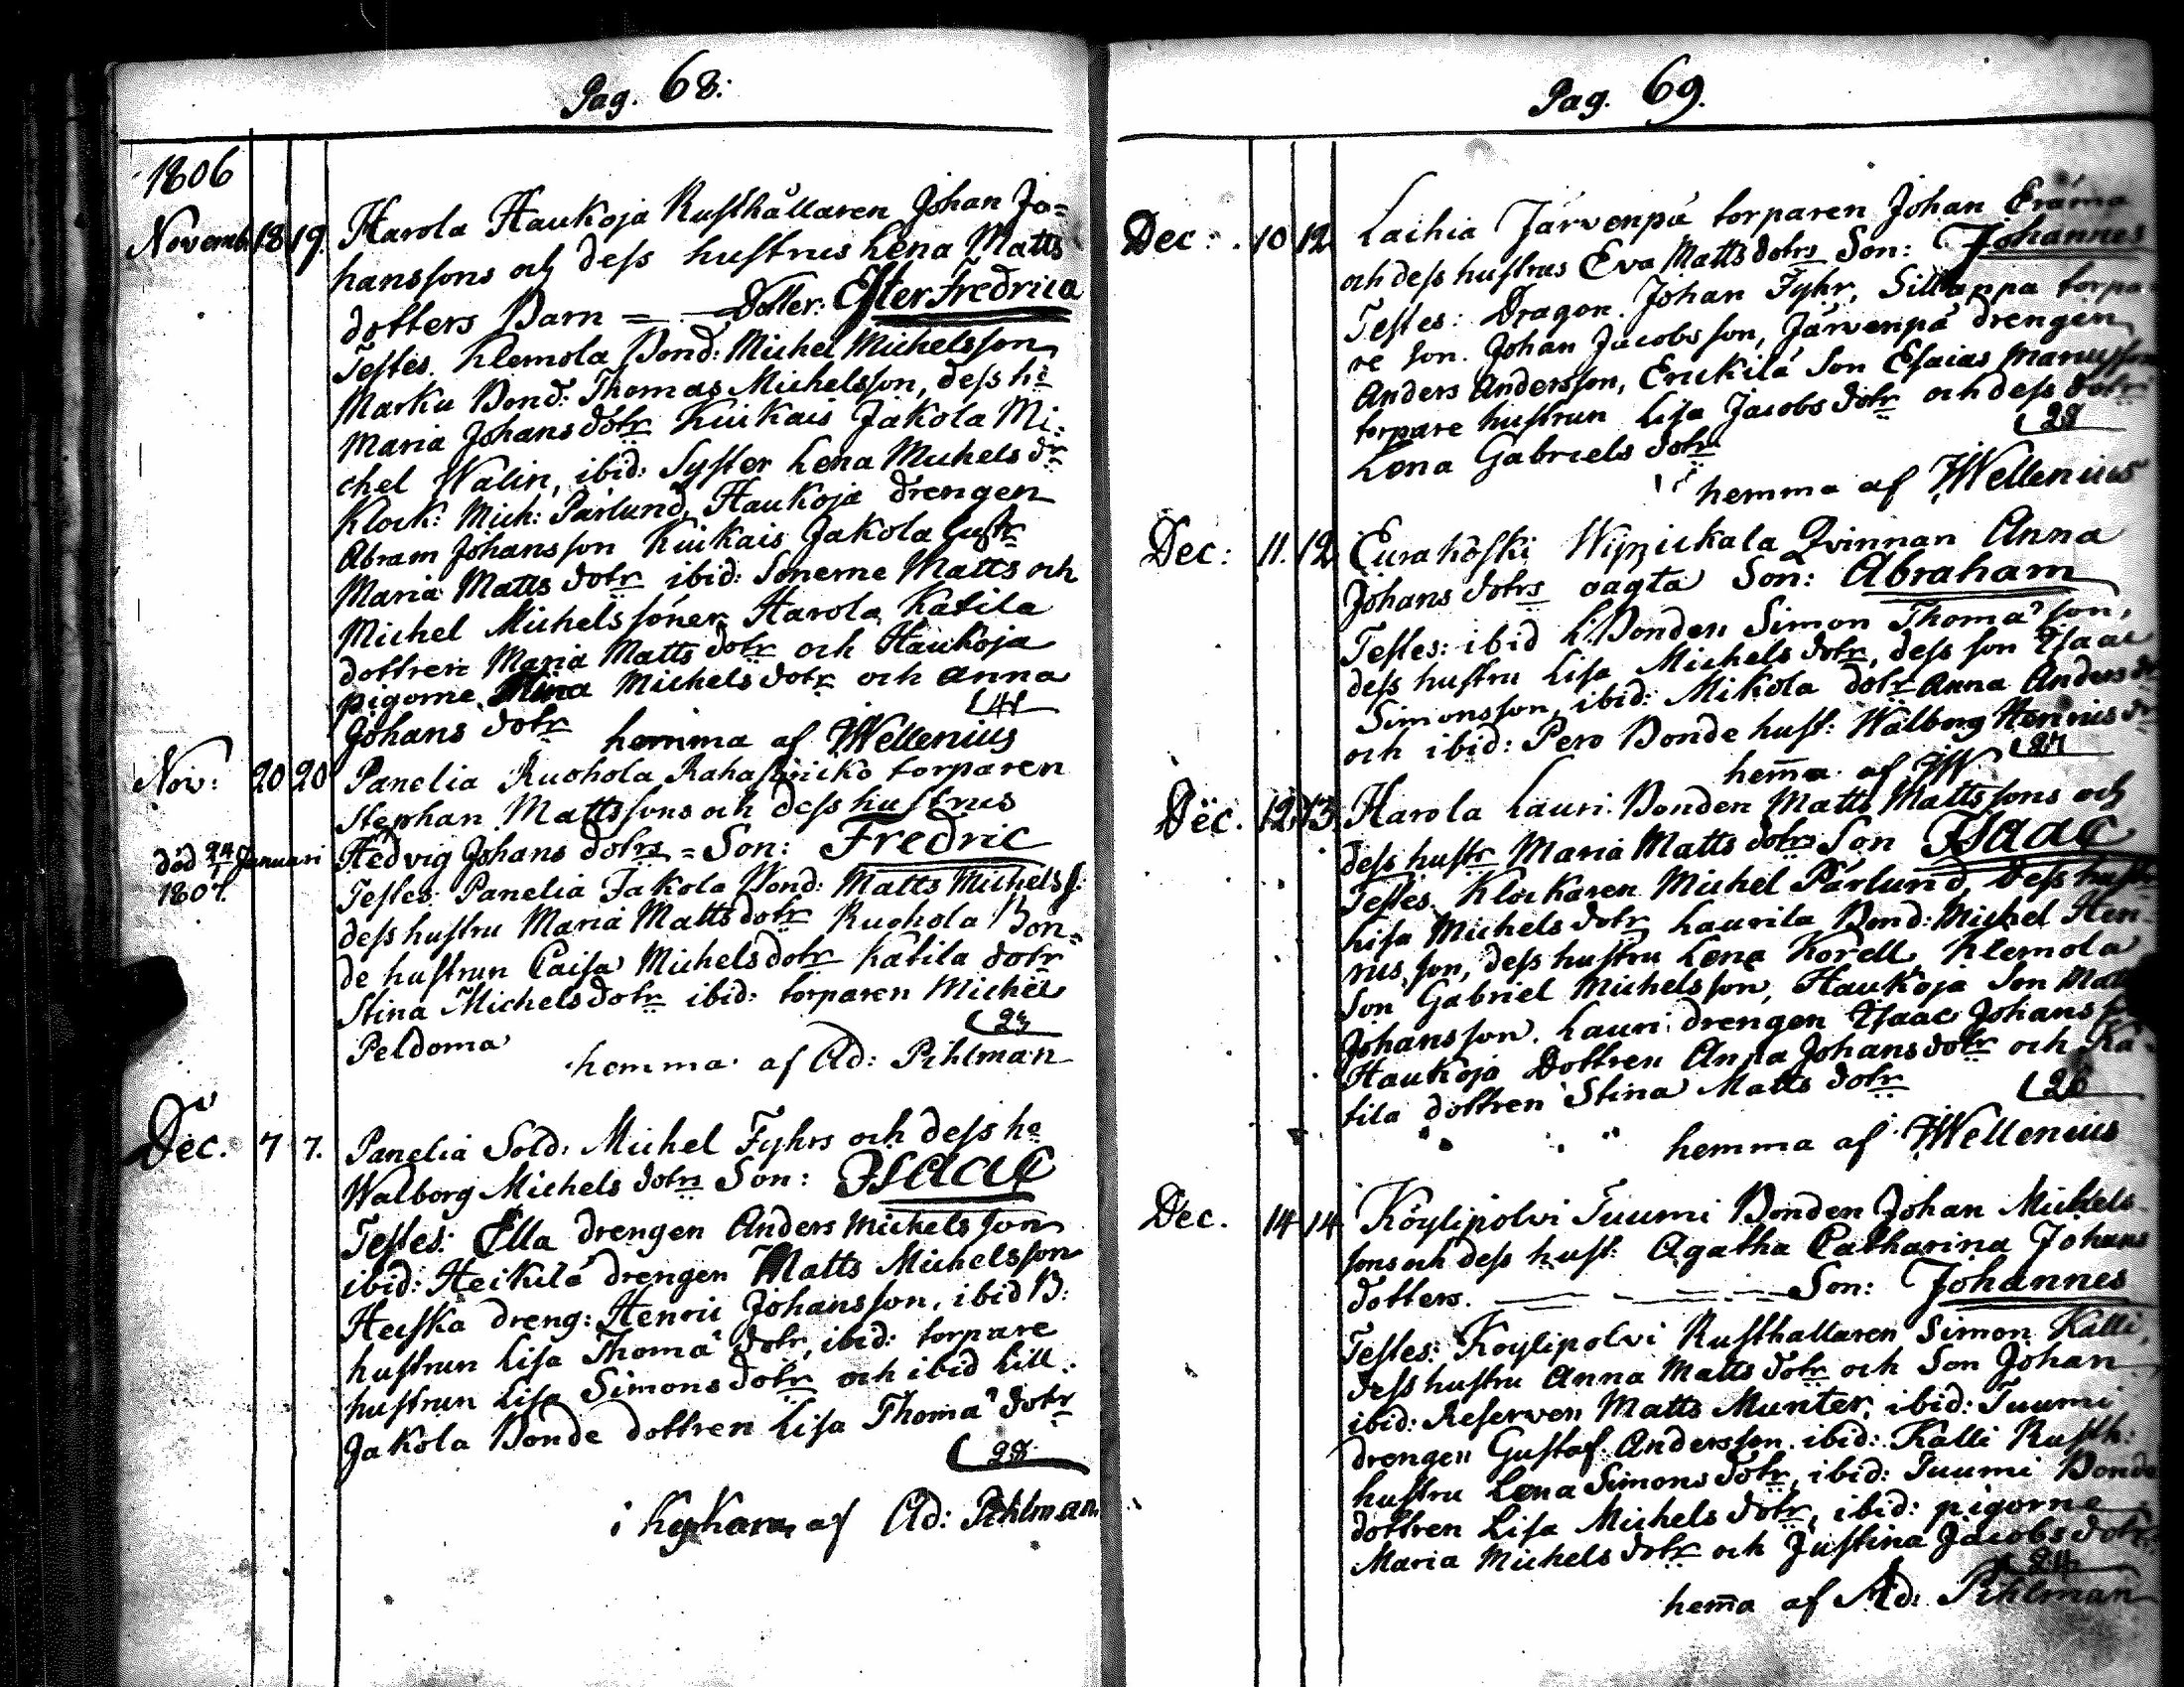 Pag. 68:
1806
Novemb. 18 19. Harola Haukoja Rusthållaren Johan Jo=
hanssons och dess hustrus Lena Matts
dotters Barn = — Dotter: Ester Fredrica
Testes. Klemola Bond: Michel Michelsson
Marku Bond: Thomas Michelsson, dess h:
Maria Johans dotr Kiukais Jakola Mi:
chel Walin, ibid: Syster Lena Michels dr
Klock: Mich: Pärlund, Haukoja drengen
Abram Johansson Kiukais Jakola hustr
Maria Matts dotr ibid: Sönerne Matts och
Michel Michelssöner Harola Katila
dottren Maria Matts dotr och Haukoja
pigorne Stina Michels dotr och Anna
Johans dotr
hemma af JWellenius
Nov: 20 20 Panelia Ruohola torparen
Stephan Mattssons och dess hustrus
Hedvig Johans dotrs = Son: Fredric
död 24 Januari
1807.
Testes: Panelia Jakola Bond: Matts Michelss:
dess hustru Maria Matts dotr Ruohola Bon=
de hustrun Caisa Michels dotr Katila dotr
Stina Michels dotr ibid: torparen Michel
Peldoma
hemma af Ad: Pihlman
Dec. 7 7. Panelia Sold: Michel Fyhrs och dess h:
Walborg Michels dotrs Son: Isaac
Testes: Ella drengen Anders Michelsson
ibid: Heikilä drengen Matts Michelsson
Heiska dreng: Henric Johansson, ibid B:
hustrun Lisa Thomæ dotr, ibid: torpare
hustrun Lisa Simons dotr och ibid Lill.
Jakola Bonde dottren Lisa Thomæ dotr
28
i Kyrkan af Ad: Pihlman
Pag. 69.
Dec: 10 12 Laihia Järvenpä torparen Johan Eräma
och dess hustrus Eva Matts dotrs Son: Johannes
Testes: Dragon. Johan Fyhr, Sillanpä torpa
re Son. Johan Jacobsson, Järvenpä drengen
Anders Andersson, Erickilä Son Esaias
torpare hustrun Lisa Jacobs dotr och dess dotr
Lena Gabriels dotr
28
hemma af JWellenius
Dec: 11. 12 Eurakoski Qvinnan Anna
Johans dotrs oägta Son: Abraham
Testes: ibid Bonden Simon Thomæ son,
dess hustru Lisa Michels dotr, dess son Isaac
Simonsson, ibid: Mikola dotr Anna Anders dr
och ibid: Pero Bonde hust: Walborg Henrics dr
27
hem̄a af JW
Dec. 12 13. Harola Lauri Bonden Matts Mattssons och
dess hustr Maria Matts dotrs Son Isaac
Testes. Klockaren Michel Pärlund, dess hustr
Lisa Michels dotr Laurila Bond: Michel Hen-
rics son, dess hustru Lena Korell, Klemola
Son Gabriel Michelsson, Haukoja Son Matts
Johansson. Lauri drengen Isaac Johans son
Haukoja Dottren Anna Johans dotr och Ka-
tila dottren Stina Matts dotr
26
hemma af JWellenius
Dec. 14 14 Köylipolvi Tuumi Bonden Johan Michels
sons och dess hust: Agatha Catharina Johans
dotters. — — — Son: Johannes
Testes: Köylipolvi Rusthållaren Simon Kalli,
dess hustru Anna Matts dotr och Son Johan
ibid: Reserven Matts Munter, ibid: Tuumi
drengen Gustaf Andersson. ibid: Kalli Rusth:
hustru Lena Simons dotr, ibid: Tuumi Bonde
dottren Lisa Michels dotr, ibid: pigorne
Maria Michels dotr och Justina Jacobs dotr
24
hem̄a af Ad: Pihlman